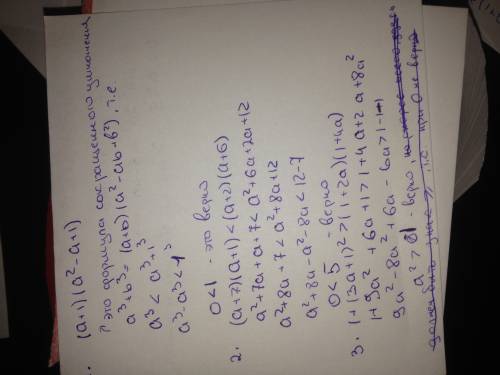 (a+1)(a²-a+1)
это формула сокращенного умножения
a³+b³=(a+b)(a²-ab+b²), т.е.
a³<a³+1³
a³-a³<1³
0<1 - это верно
2. (a+7)(a+1)<(a+2)(a+6)
a²+7a+a+7<a²+6a+2a+12
a²+8a+7<a²+8a+12
a²+8a-a²-8a<12-7
0<5 - верно
3. 1+(3a+1)²>(1+2a)(1+4a)
1+9a²+6a+1>1+4a+2a+8a²
9a²-8a²+6a-6a>1-1-1
a²>-1 - верно,
должен быть знак ≥, т.е. при 0 не верно